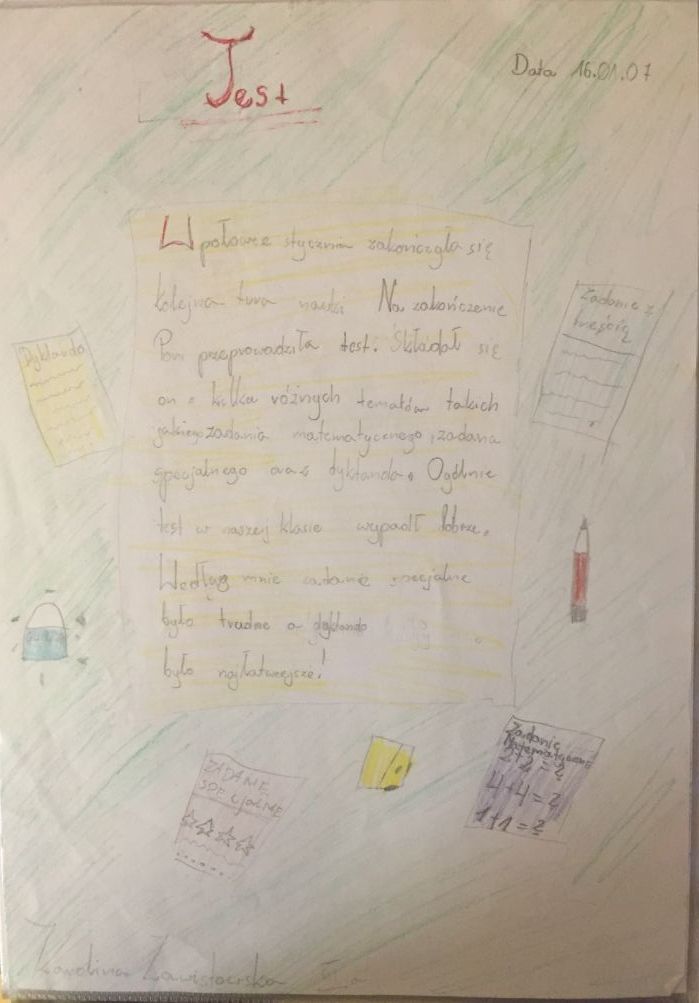 Test
Data 16.01.07
W połowie stycznia zakończyła się
kolejna tura nauki Na zakończenie
Pani przeprowadziła test. Składał się
on z kilku różnych tematów takich
jak: zadania matematycznego, zadania
specjalnego oraz dyktanda. Ogólnie
test w naszej klasie wypadł dobrze.
Według mnie zadanie specjalne
było trudne a dyktando
było najłatwiejsze!
Dyktando
Zadanie z
treścią
ZADANIE
SPECJALNE
Zadanie
Matematyczne
2+2=?
4+4=?
1+1=?
Karolina Zawistowska